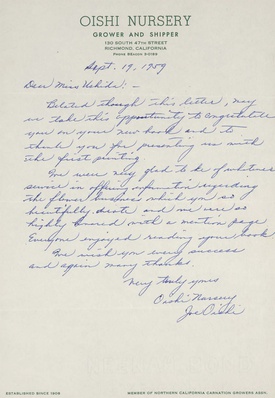 OISHI NURSERY
GROWER AND SHIPPER
130 SOUTH 47TH STREET
RICHMOND, CALIFORNIA
PHONE BEACON 5-0193
Sept. 19, 1959
Dear Miss Uchida: -
Belated though this letter, may
we take this opportunity to congratulate
you on your new book and to
thank you for presenting us with
the first printing.
We were very glad to be of whatever
service in offering information regarding
the flower business which you so
beautifully wrote and we were so
highly honored with a mention page.
Everyone enjoyed reading your book.
We wish you every success
and again many thanks.
Very truly yours
Oishi Nursery
Joe Oishi
ESTABLISHED SINCE 1906
MEMBER OF NORTHERN CALIFORNIA CARNATION GROWERS ASSN.